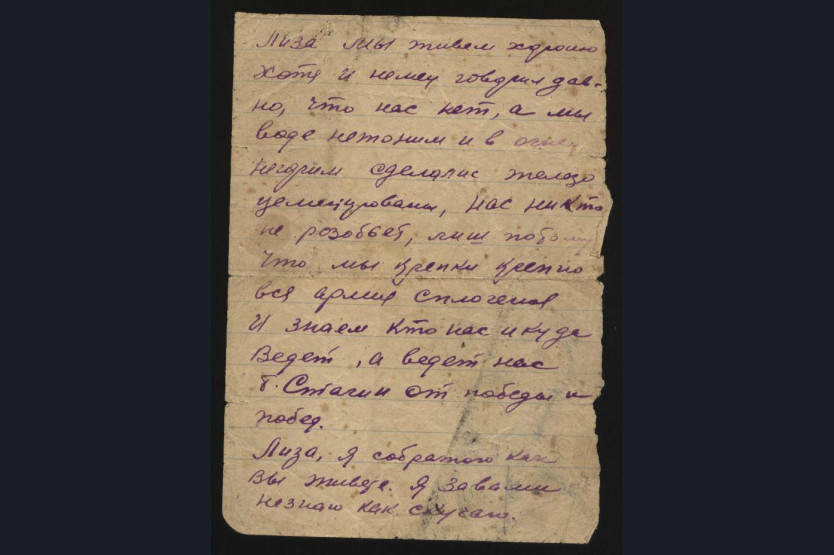 Лиза мы живем хорошо
Хотя и немец говорил дав-
но, что нас нет, а мы
воде нетоним и в огне
негорим сделались железо
цементрованы, нас никто
не розобьет, лиш потому
что мы крепки крепко
вся армия сплочена
И знаем кто нас и куда
Ведет, а ведет нас
т. Сталин от победы и
побед.
Лиза, я как
Вы живете. Я завами
незнаю как скучаю.